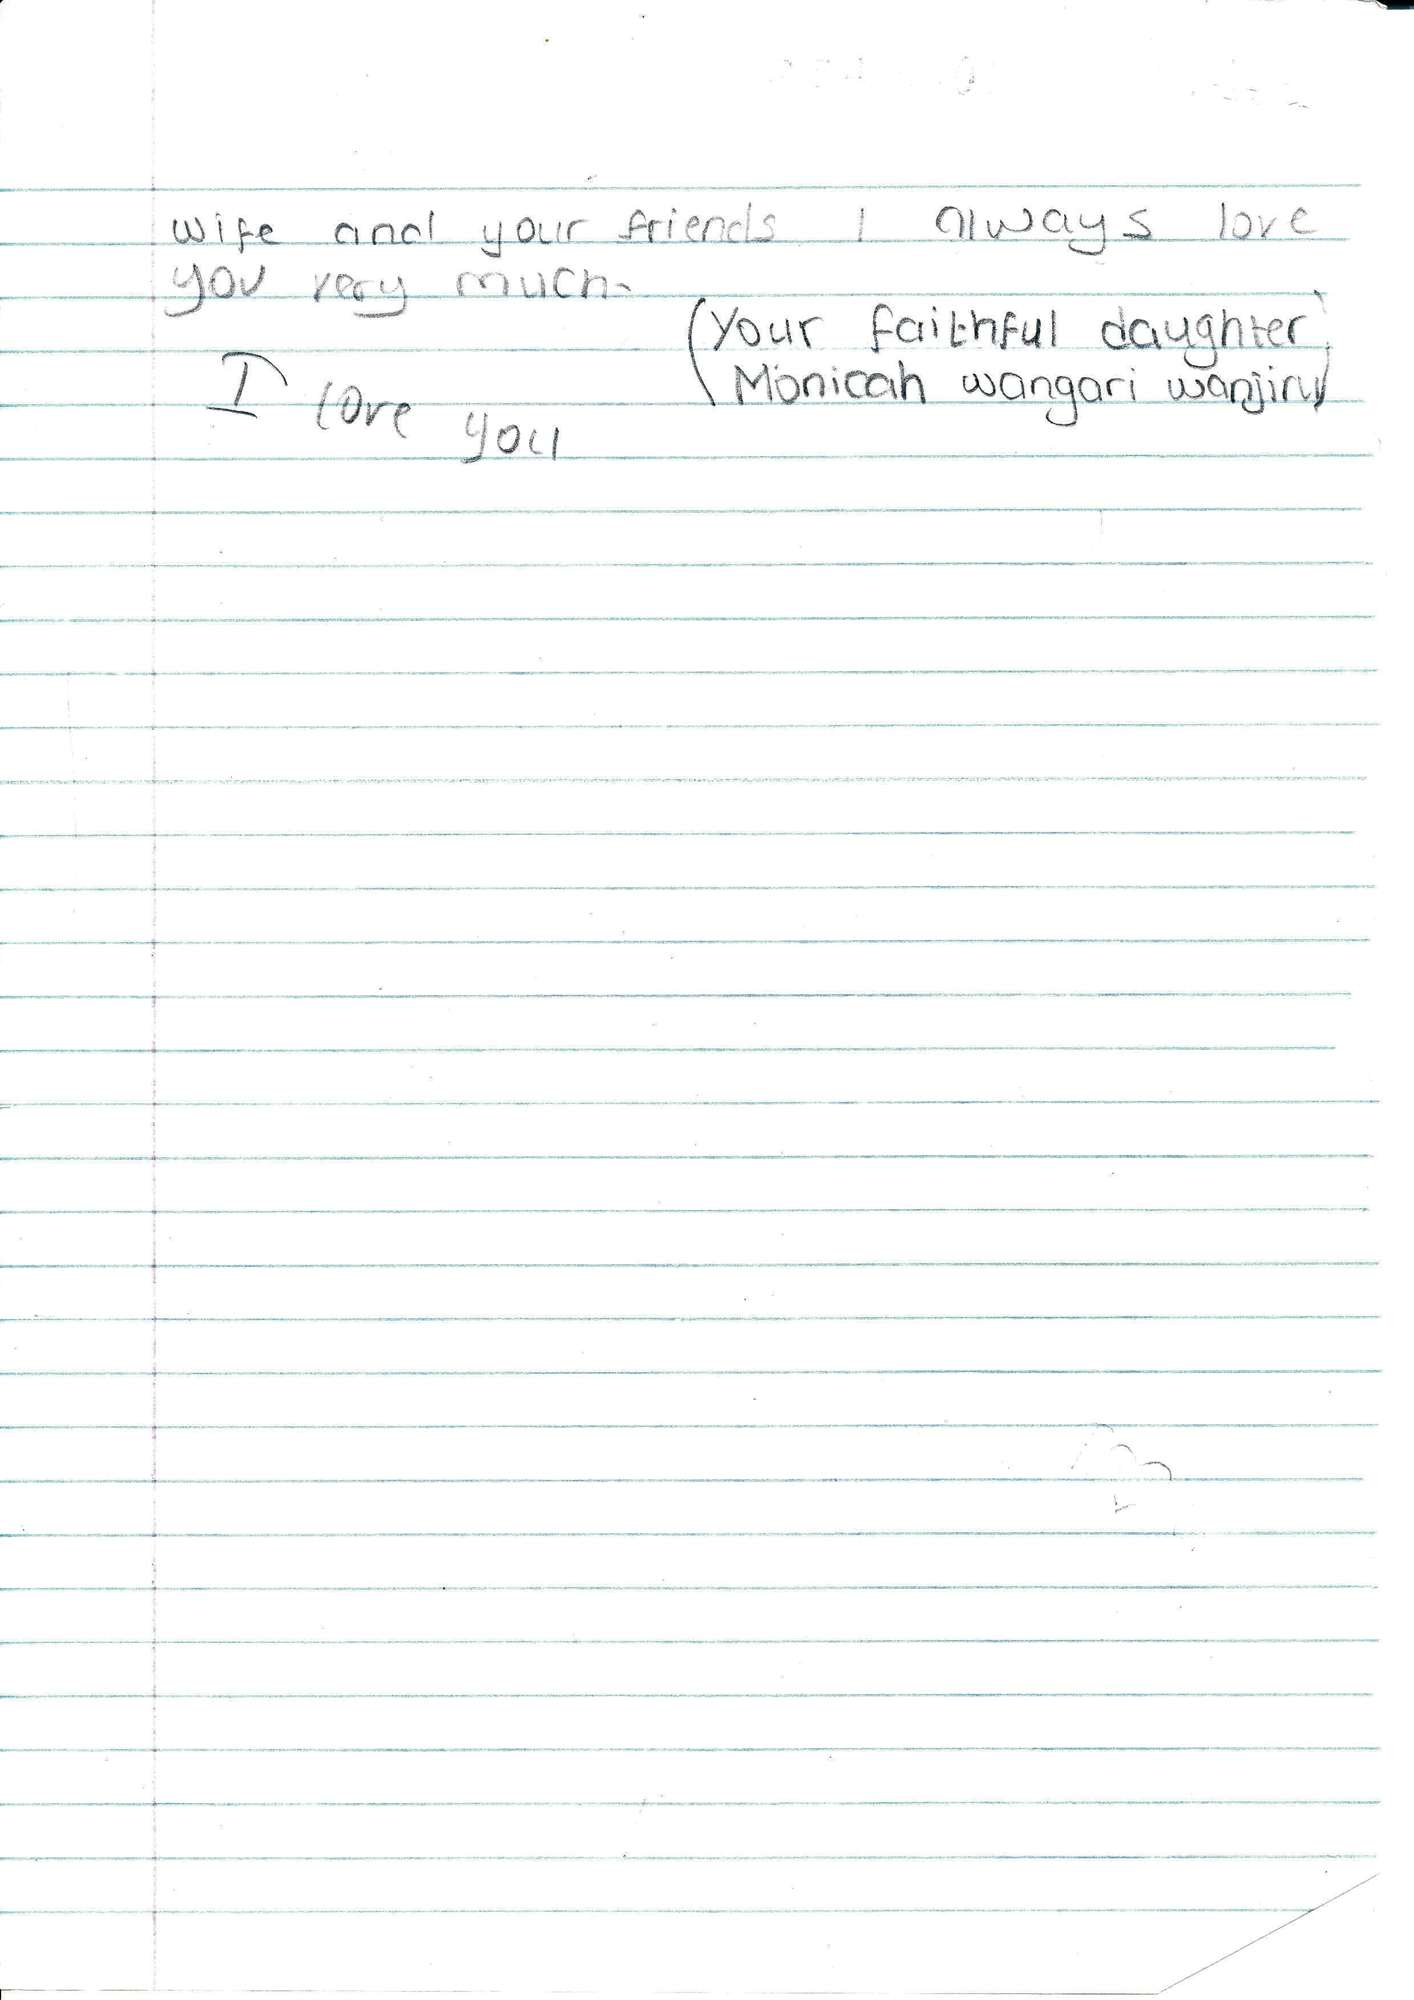 wife and your friends I always love
you very much.
(Your faithful daughter)
(Monicah wangari wanjiru)
I love you